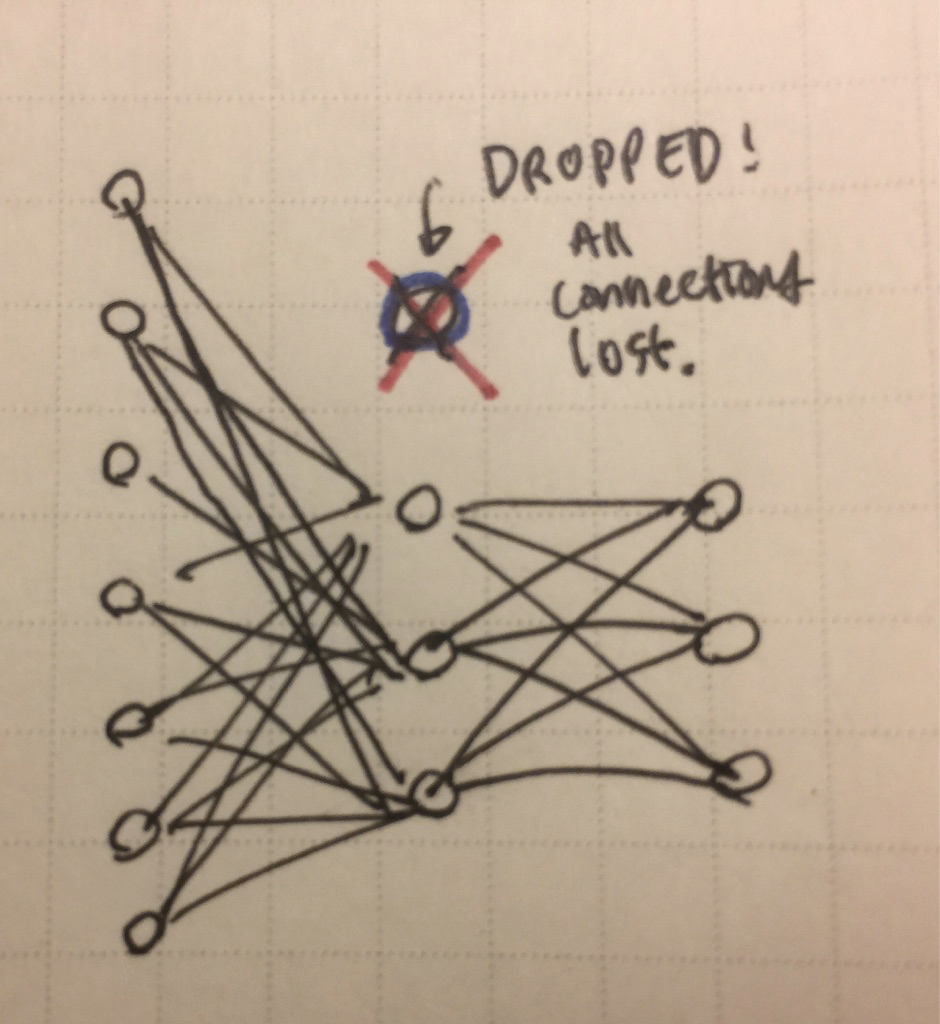 DROPPED!
All
connections
lost.